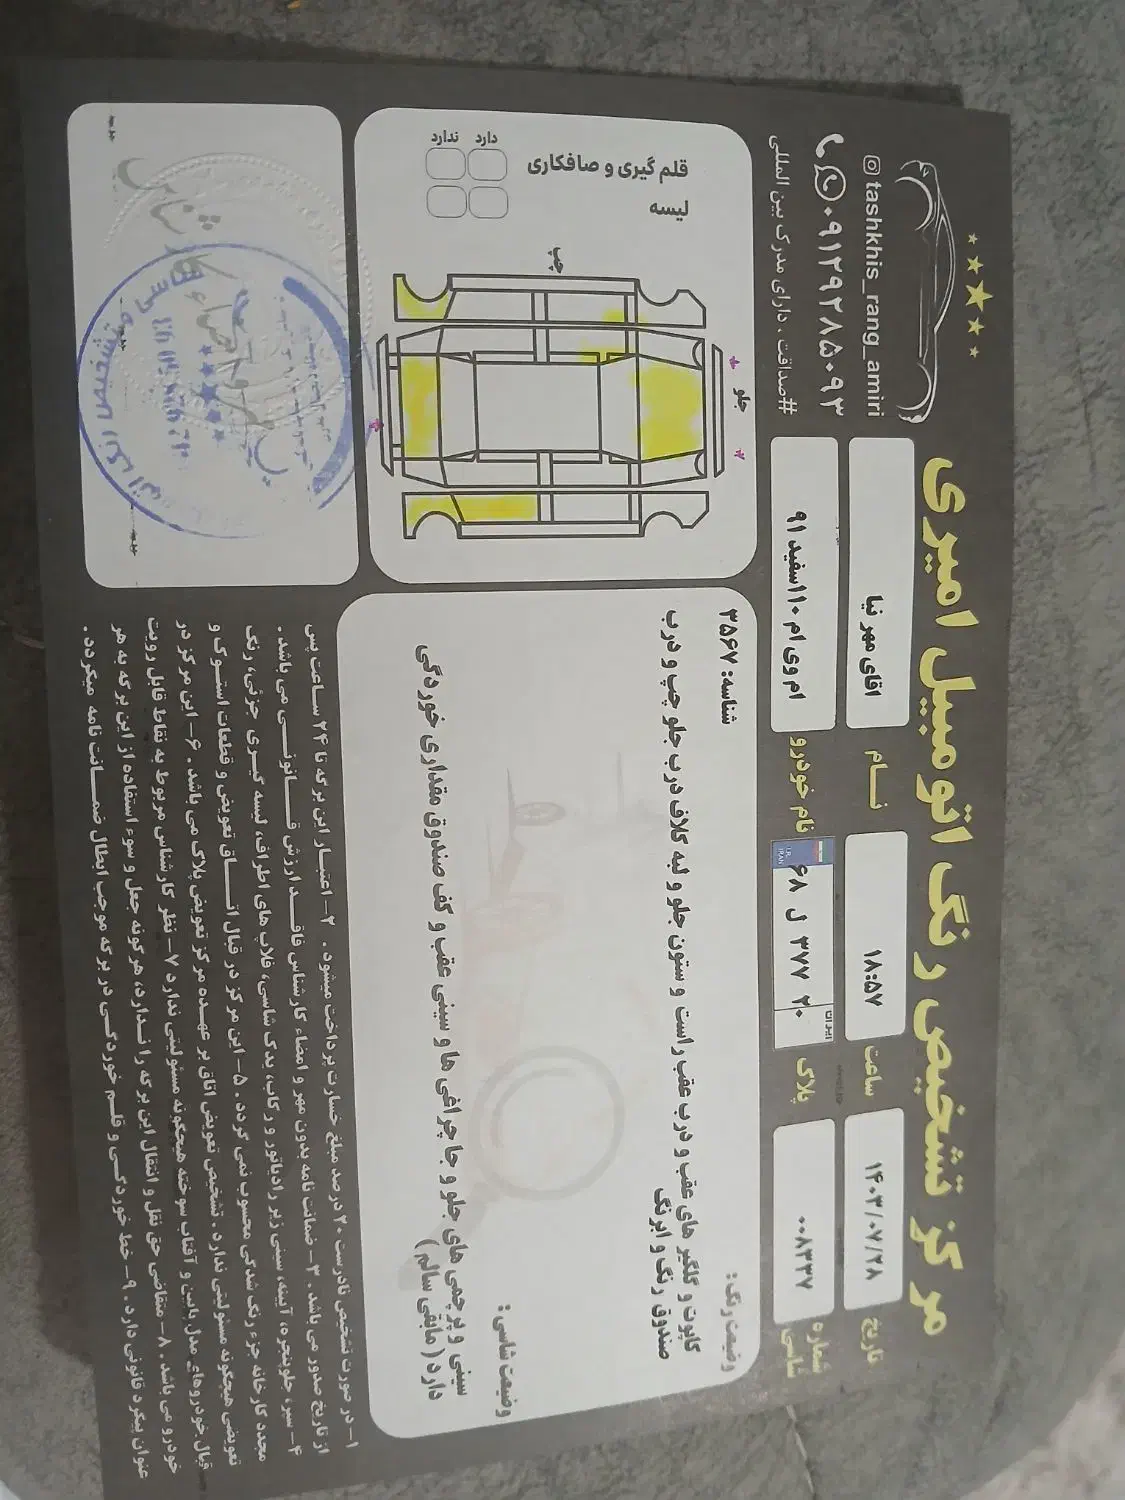 مرکز تشخیص رنگ اتومبیل امیری
tashkhis_rang_amiri
۰۹۱۲۹۲۸۵۰۹۳
#صداقت . دارای مدرک بین المللی
تاریخ
۱۴۰۳/۰۷/۲۸
ساعت
۱۸:۵۷
نـــام
اقای مهر نیا
شماره شاسی
۰۰۸۳۳۷
پلاک
۶۸ ل ۳۷۷
ایران
۲۰
I.R. IRAN
نام خودرو
ام وی ام ۱۱۰سفید ۹۱
وضعیت رنگ :
شناسه: ۳۵۶۷
کاپوت و گلگیر های عقب و درب عقب راست و ستون جلو و لبه کلاف درب جلو چپ و درب
صندوق رنگ و ابرنگ
وضعیت شاسی :
سینی و پرچمی های جلو و جا چراغی ها و سینی عقب و کف صندوق مقداری خوردگی
دارد ( مابقی سالم )
قلم گیری و صافکاری
لیسه
دارد
ندارد
چپ
جلو
۱- در صورت تشخیص نادرست ۲۰ درصد مبلغ خسارت پرداخت میشود . ۲- اعتبـــار این برگه تا ۲۴ ســاعت پس
از تاریخ صدور می باشد . ۳- ضمانت نامه بدون مهر و امضاء کارشناس فاقـــد ارزش قــــانونـــی می باشد .
۴- سپر، جلوپنجره، آیینه، سینی زیر رادیاتور و رکاب، یدک شاسی، قلاب های اطراف، لیسه گیــری جزئی، رنگ
مجدد کارخانه جزء رنگ شدگی محسوب نمی گردد . ۵- این مرکز در قبال اتـــاق تعویض و قطعات استــوک و
تعویضی هیچگونه مسئولیتی ندارد . تشخیص تعویض اتاق بر عهــده مرکز تعویض پلاک می باشد . ۶- این مرکز در
قبال خودروهای مدل پایین و آفتاب سوخته هیچگونه مسئولیتی ندارد ۷- نظر کارشناس مربوط به نقاط قابل رویت
خودرو می باشد . ۸- متقاضی حق نقل و انتقال این برگه را نــدارد، هرگونه جعل و سوء استفاده از این برگه به هر
عنوان پیگرد قانونی دارد . ۹- خط خوردگــی و قلــم خوردگــی در برگه موجب ابطال ضمـــانت نامه میگردد .